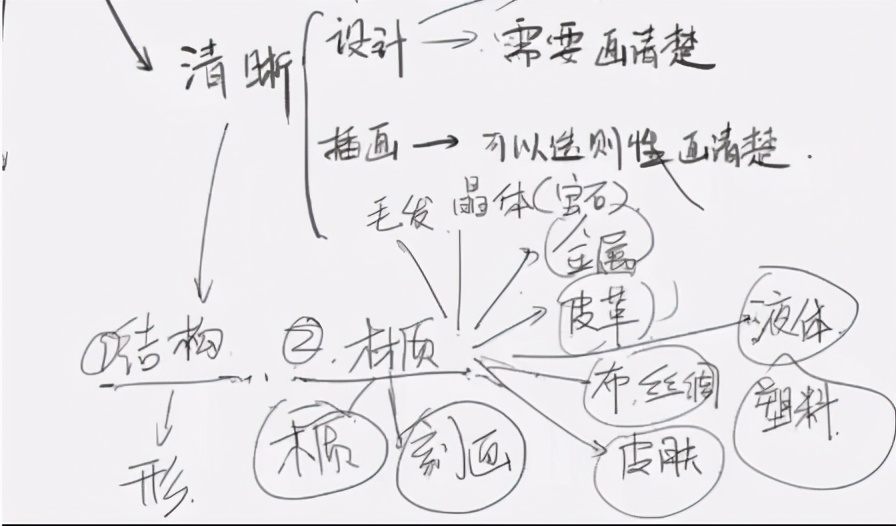 清晰
设计 → 需要画清楚
插画 → 可以选则性画清楚.
毛发 晶体(宝石)
金属
皮革
液体
①结构 ②材质
布.丝绸
塑料
木质 刻画
皮肤
形